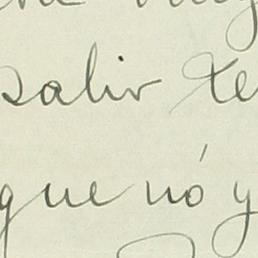 salir te
que nó y